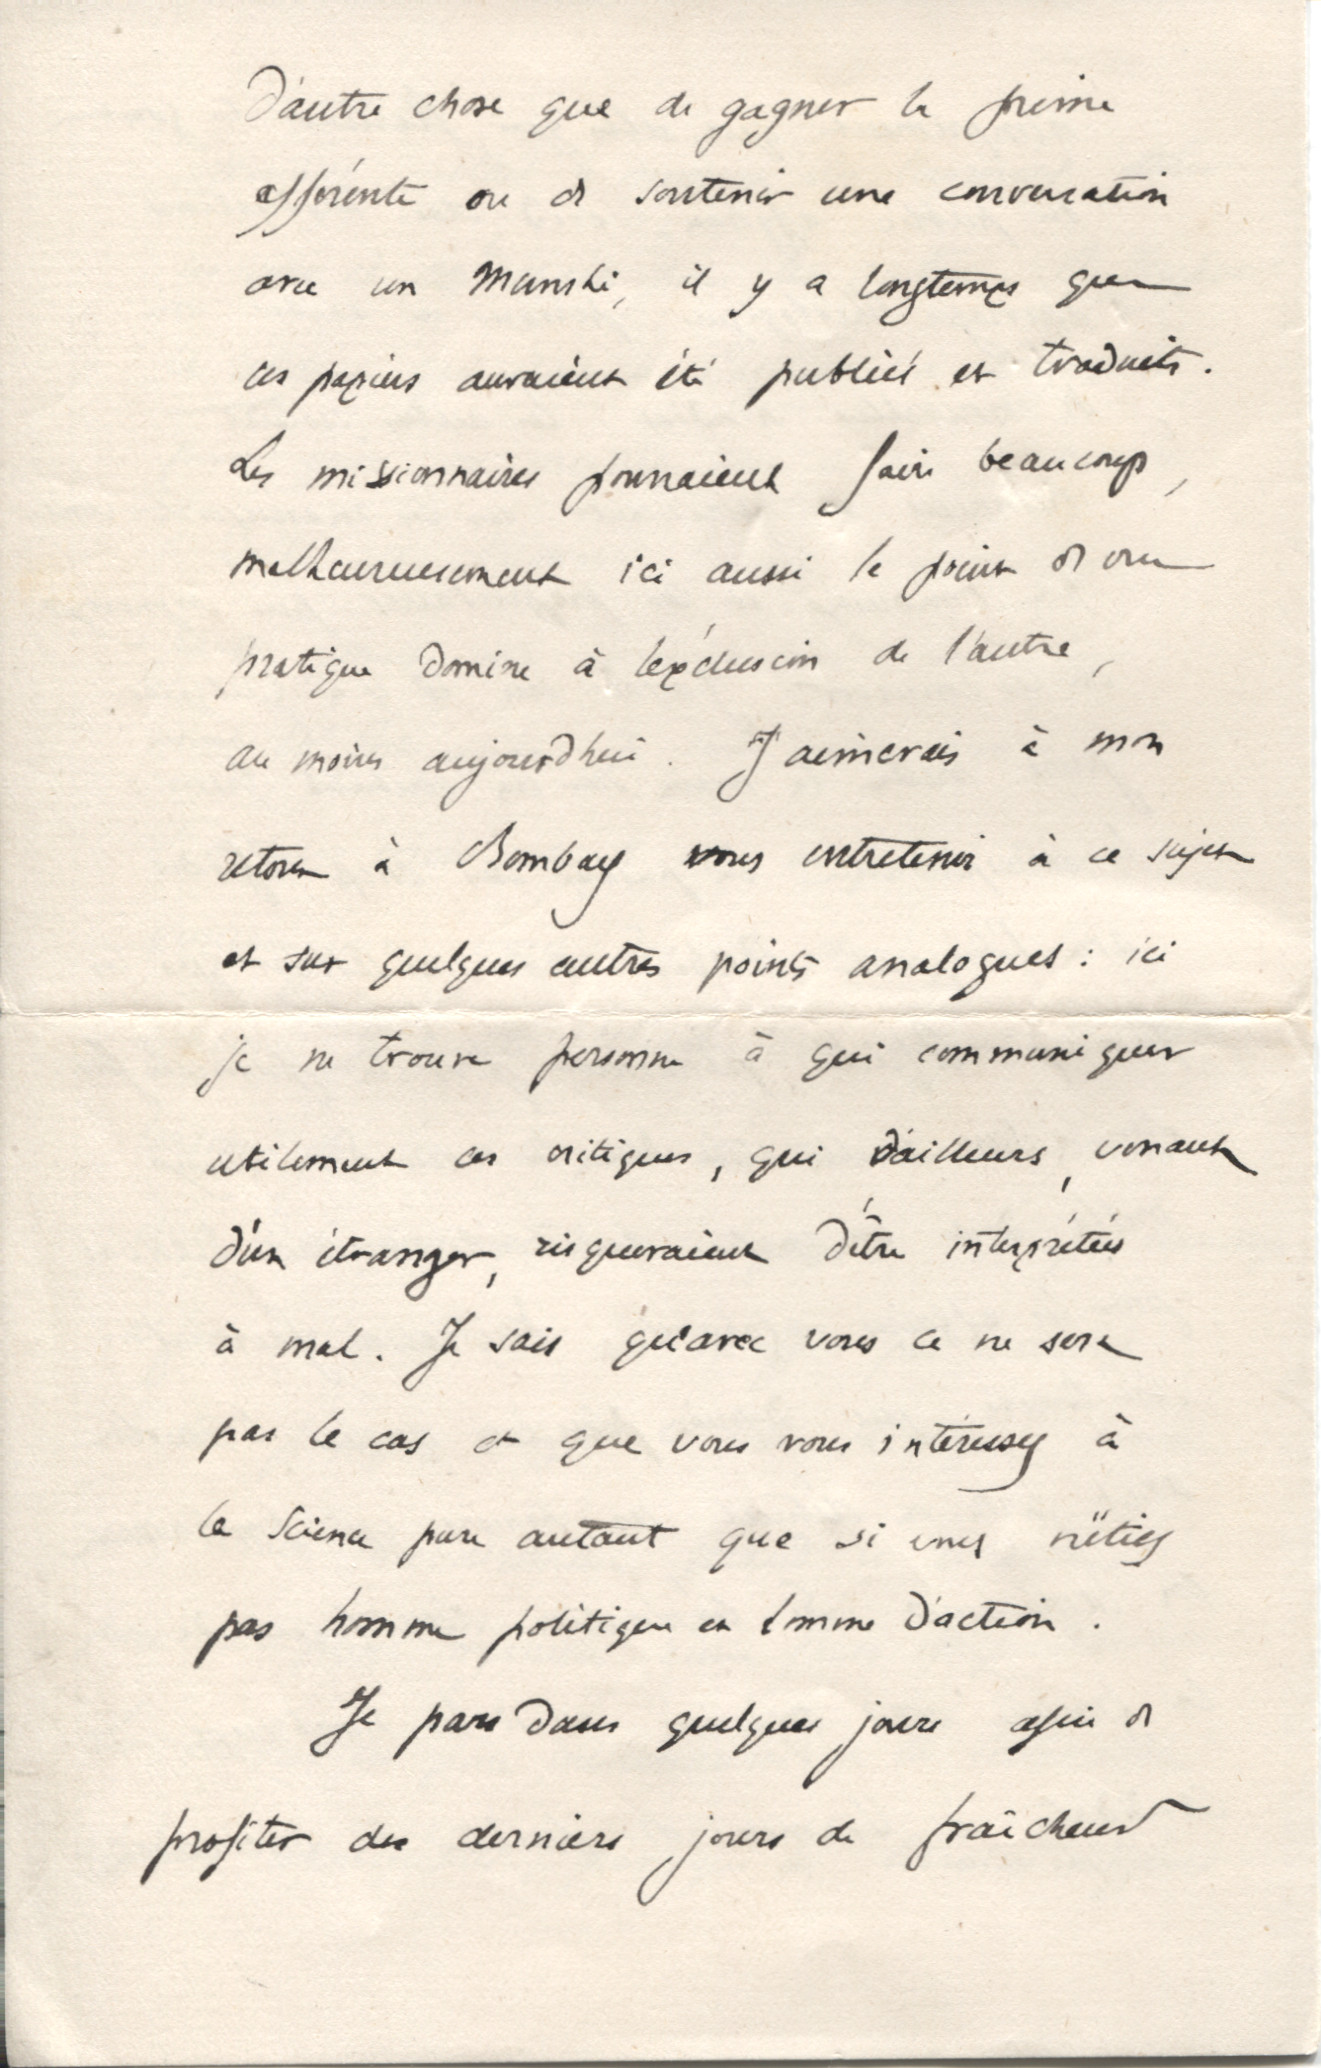 d'autre chose que de gagner la prime
afférente ou de soutenir une conversation
avec un Munshi, il y a longtemps que
ces papiers auraient été publiés et traduits.
Les missionnaires pourraient faire beaucoup,
malheureusement ici aussi le point de vue
pratique domine à l'exclusion de l'autre,
au moins aujourd'hui. J'aimerais à mon
retour à Bombay vous entretenir à ce sujet
et sur quelques autres points analogues : ici
je ne trouve personne à qui communiquer
utilement ces critiques, qui d'ailleurs, venant
d'un étranger, risqueraient d'être interprétées
à mal. Je sais qu'avec vous ce ne sera
pas le cas et que vous vous intéressez à
la science pure autant que si vous n'étiez
pas homme politique et homme d'action.
Je pars dans quelques jours afin de
profiter des derniers jours de fraîcheur